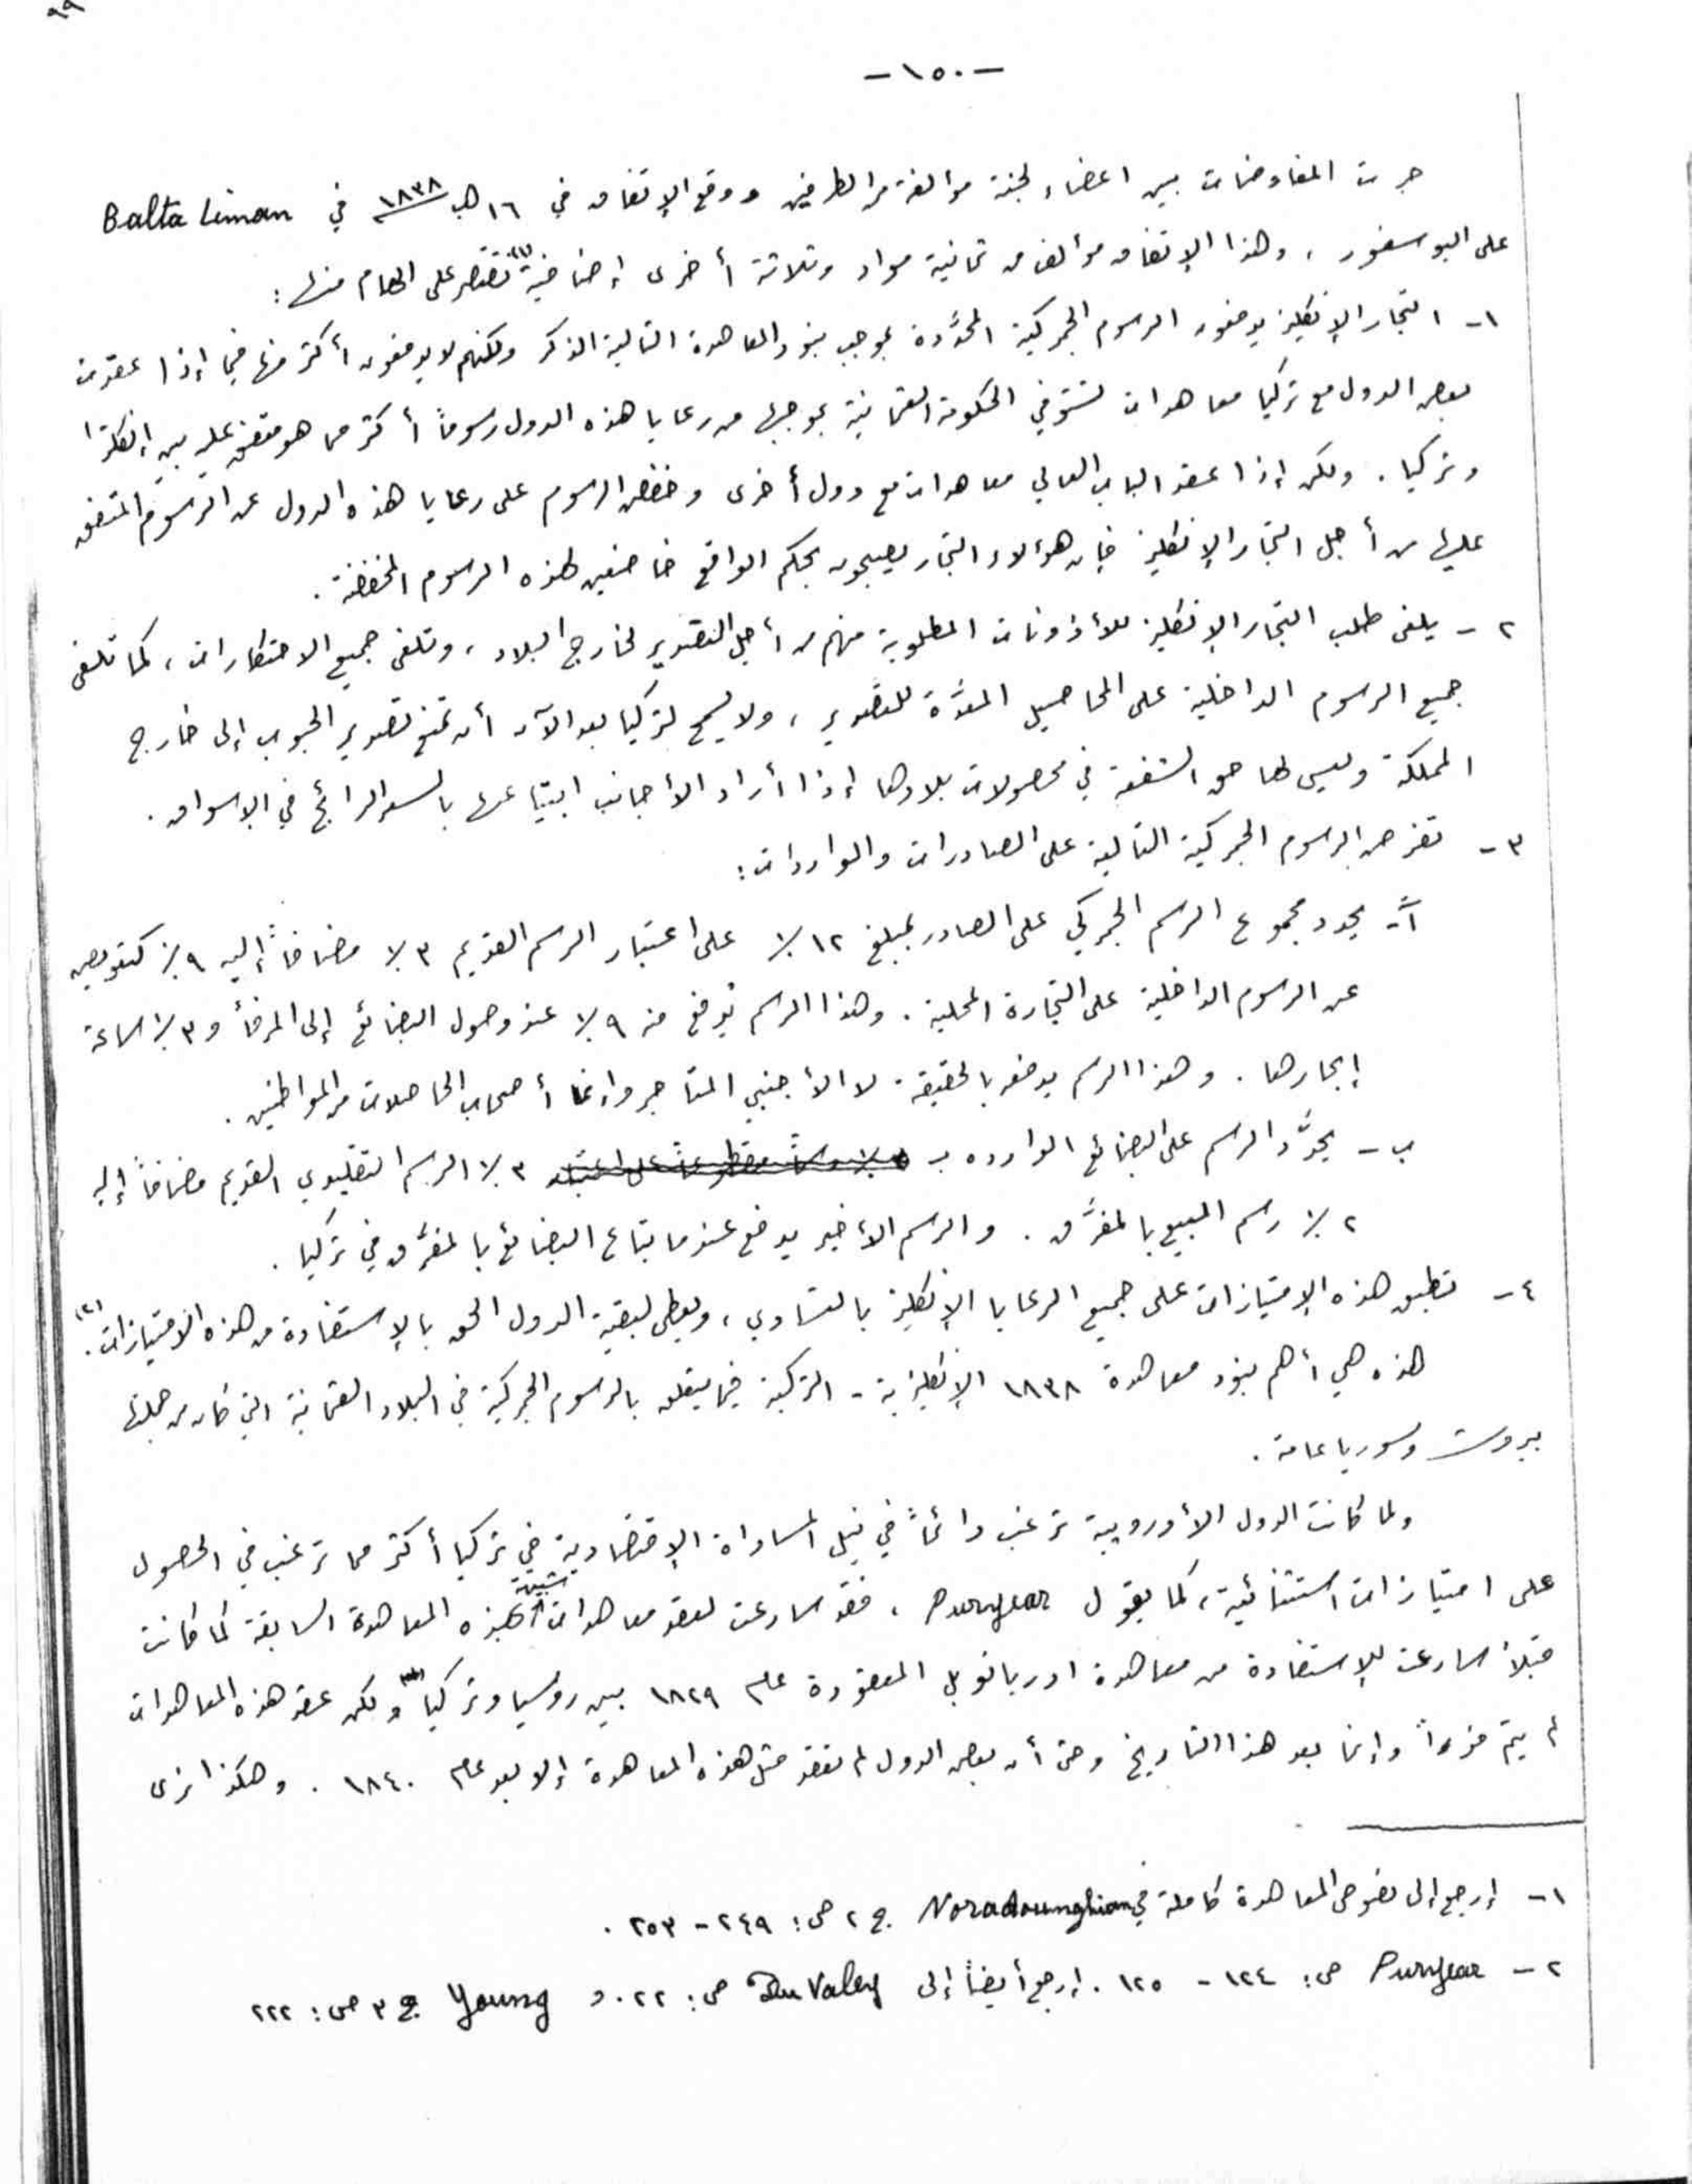 ٩٩
-١٥٠-
جرت المفاوضات بين اعضاء لجنة مؤالفة من الطرفين ووقع الإتفاق في ١٦ آب ١٨٣٨ في Balta Liman
على البوسفور ، وهذا الإتفاق مؤلف من ثمانية مواد وثلاثة أخرى إضافية (١) نقتصر على الهام منها :
١- التجار الإنكليز يدفعون الرسوم الجمركية المحدَّدة بموجب بنود المعاهدة التالية الذكر ولكنهم لا يدفعون أكثر منها فيما إذا عقدت
بعض الدول مع تركيا معاهدات تستوفي الحكومة العثمانية بموجبها من رعايا هذه الدول رسوماً أكثر مما هو متفق عليه بين إنكلترا
وتركيا . ولكن إذا عقد الباب العالي معاهدات مع دول أخرى وخفض الرسوم على رعايا هذه الدول عن الرسوم المتفق
عليها من أجل التجار الإنكليز فإن هؤلاء التجار يصبحون بحكم الواقع خاضعين لهذه الرسوم المخفضة .
٢ - يلغى طلب التجار الإنكليز للأذونات المطلوبة منهم من أجل التصدير لخارج البلاد ، وتلغى جميع الاحتكارات ، كما تلغى
جميع الرسوم الداخلية على المحاصيل المعدَّة للتصدير ، ولا يسمح لتركيا بعد الآن أن تمنع تصدير الحبوب إلى خارج
المملكة وليس لها حق الشفعة في محصولات بلادها إذا أراد الأجانب ابتياعها بالسعر الرائج في الاسواق .
٣ - تفرض الرسوم الجمركية التالية على الصادرات والواردات :
آ - يحدد مجموع الرسم الجمركي على الصادر بمبلغ ١٢ ٪ على اعتبار الرسم القديم ٣ ٪ مضافاً إليه ٩ ٪ كتعويض
عن الرسوم الداخلية على التجارة المحلية . وهذا الرسم يُدفع منه ٩ ٪ عند وصول البضائع إلى المرفأ و ٣ ٪ ساعة
إبحارها . وهذا الرسم يدفعه بالحقيقة لا الأجنبي المتاجر وإنما أصحاب الحاصلات من المواطنين .
ب - يحدَّد الرسم على البضائع الوارده بـ ٣ ٪ الرسم التقليدي القديم مضافاً إليه
٢ ٪ رسم المبيع بالمفرَّق . والرسم الأخير يدفع عندما تباع البضائع بالمفرَّق في تركيا .
٤ - تطبق هذه الإمتيازات على جميع الرعايا الإنكليز بالتساوي ، ويعطى لبقية الدول الحق بالإستفادة من هذه الامتيازات (٢) .
هذه هي أهم بنود معاهدة ١٨٣٨ الإنكليزية - التركية فيما يتعلق بالرسوم الجمركية في البلاد العثمانية التي كان من جملتها
بيروت وسوريا عامة .
ولما كانت الدول الأوروبية ترغب دائماً في نيل المساواة الإقتصادية في تركيا أكثر مما ترغب في الحصول
على امتيازات استثنائية ، كما يقول Puryear ، فقد سارعت لعقد معاهدات شبيهة بهذه المعاهدة السابقة كما كانت
قبلاً سارعت للإستفادة من معاهدة ادريانوبل المعقودة عام ١٨٢٩ بين روسيا وتركيا ولكن عقد هذه المعاهدات
لم يتم فوراً وإنما بعد هذا التاريخ وحتى أن بعض الدول لم تعقد مثل هذه المعاهدة إلا بعد عام ١٨٤٠ . وهكذا نرى
١ - إرجع إلى نصوص المعاهدة كاملة في Noradounghian ج ٢ ص : ٢٤٩ - ٢٥٣ .
٢ - Puryear ص : ١٢٤ - ١٢٥ . إرجع أيضاً إلى Du Valey ص : ٢٢ . و Young ج ٣ ص : ٢٢٢